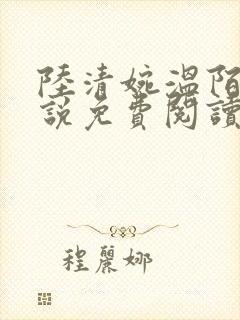 陸清婉溫陌
說免費閱讀
程麗娜